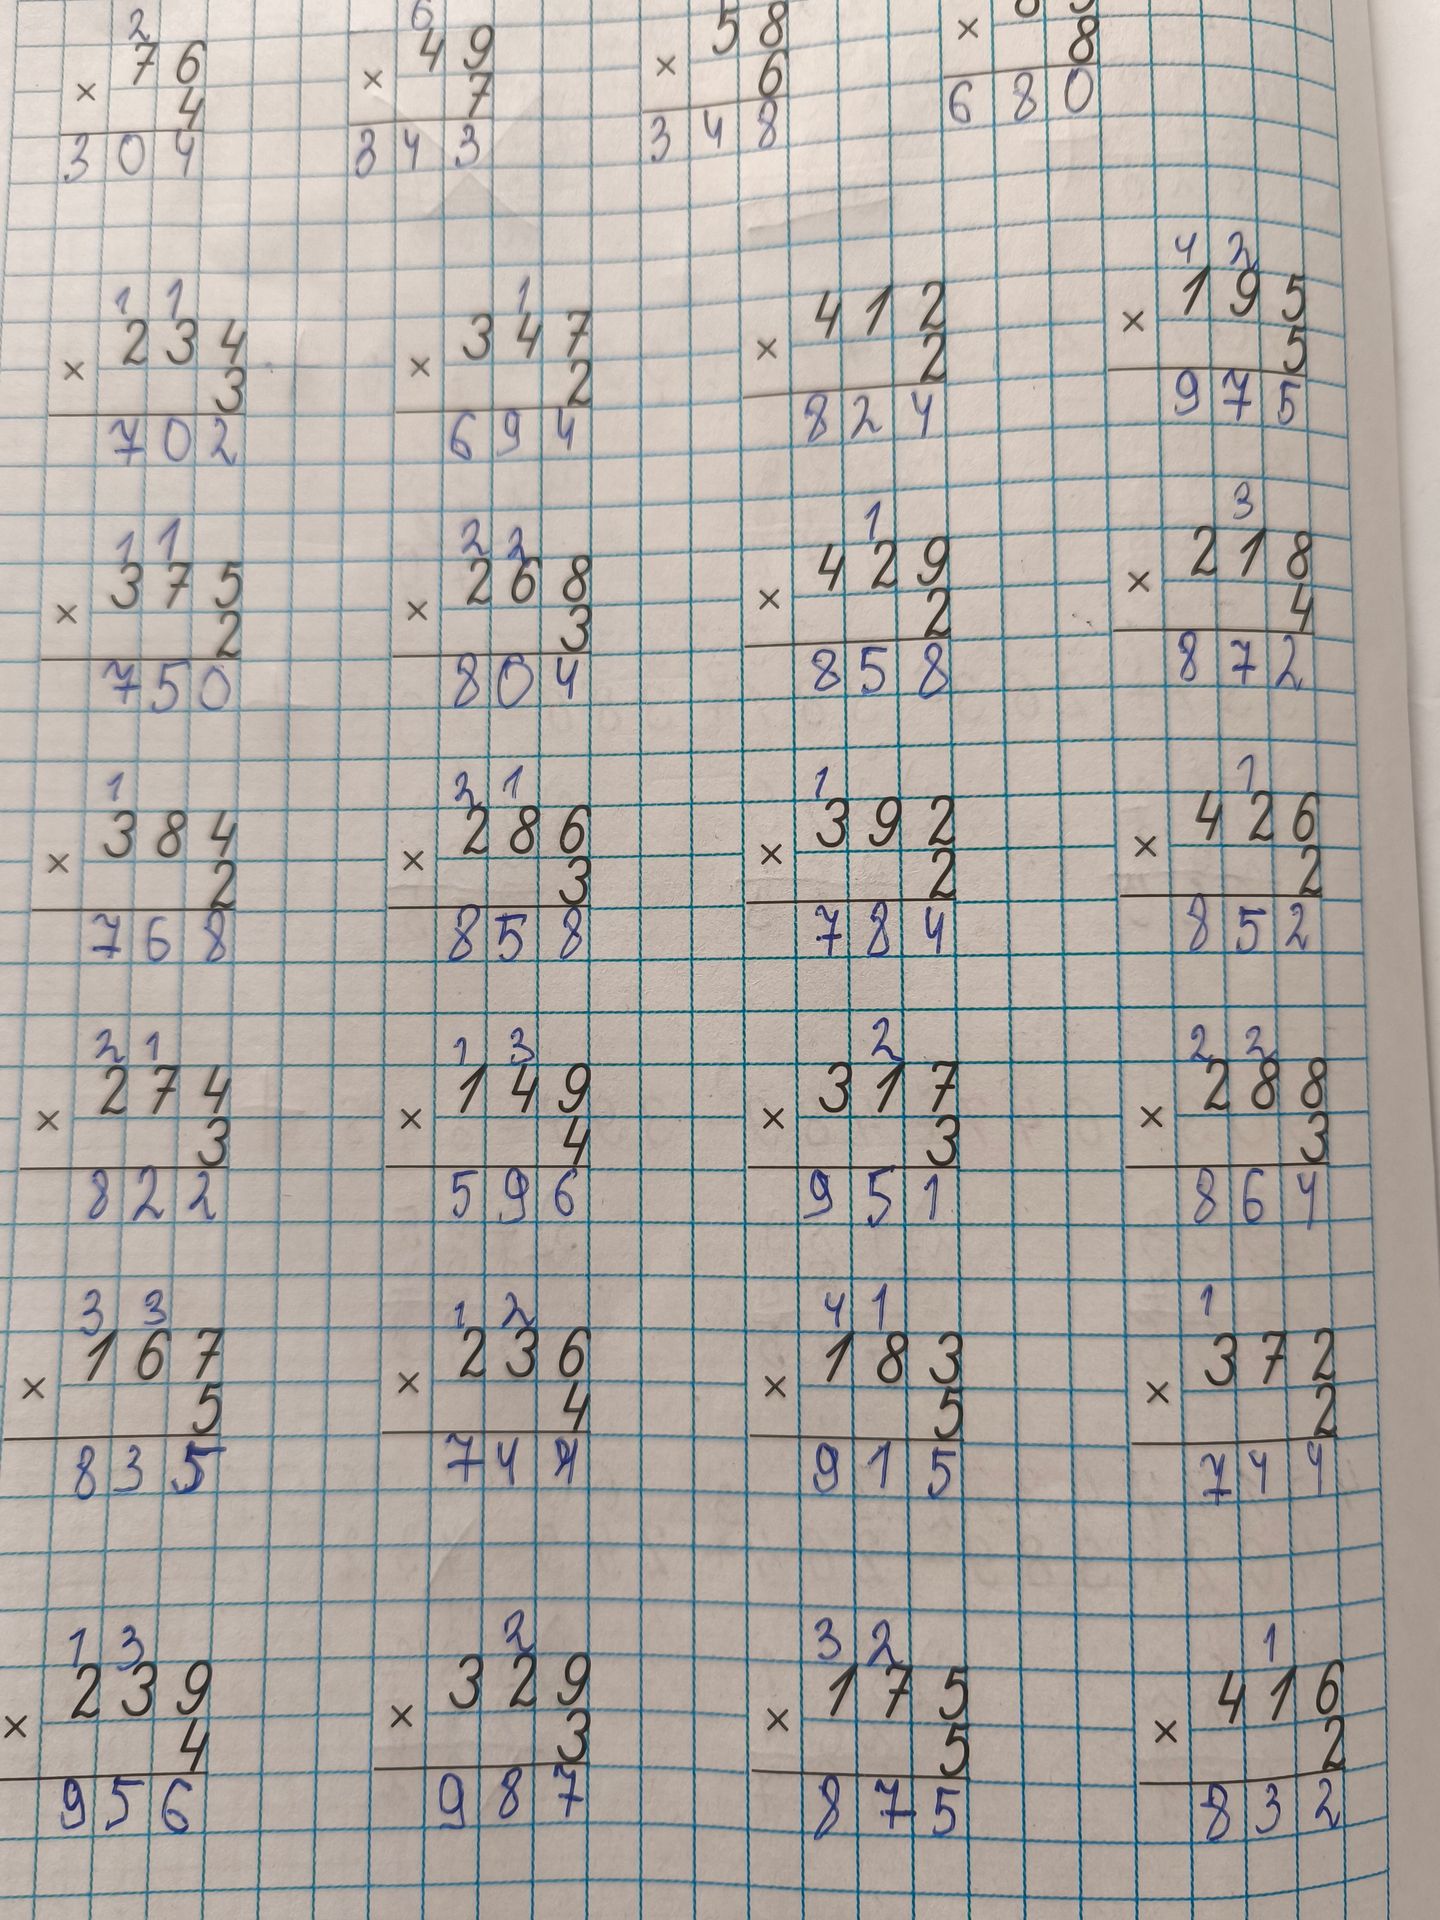 2 6
76 49 58
× 4 × 7 × 6 × 8
304 343 348 680
1 1 1 4 2
234 347 412 195
× 3 × 2 × 2 × 5
702 694 824 975
1 1 2 2 1 3
375 268 429 218
× 2 × 3 × 2 × 4
750 804 858 872
1 2 1 1 1
384 286 392 426
× 2 × 3 × 2 × 2
768 858 784 852
2 1 1 3 2 2 2
274 149 317 288
× 3 × 4 × 3 × 3
822 596 951 864
3 3 1 2 4 1 1
167 236 183 372
× 5 × 4 × 5 × 2
835 744 915 744
1 3 2 3 2 1
239 329 175 416
× 4 × 3 × 5 × 2
956 987 875 832